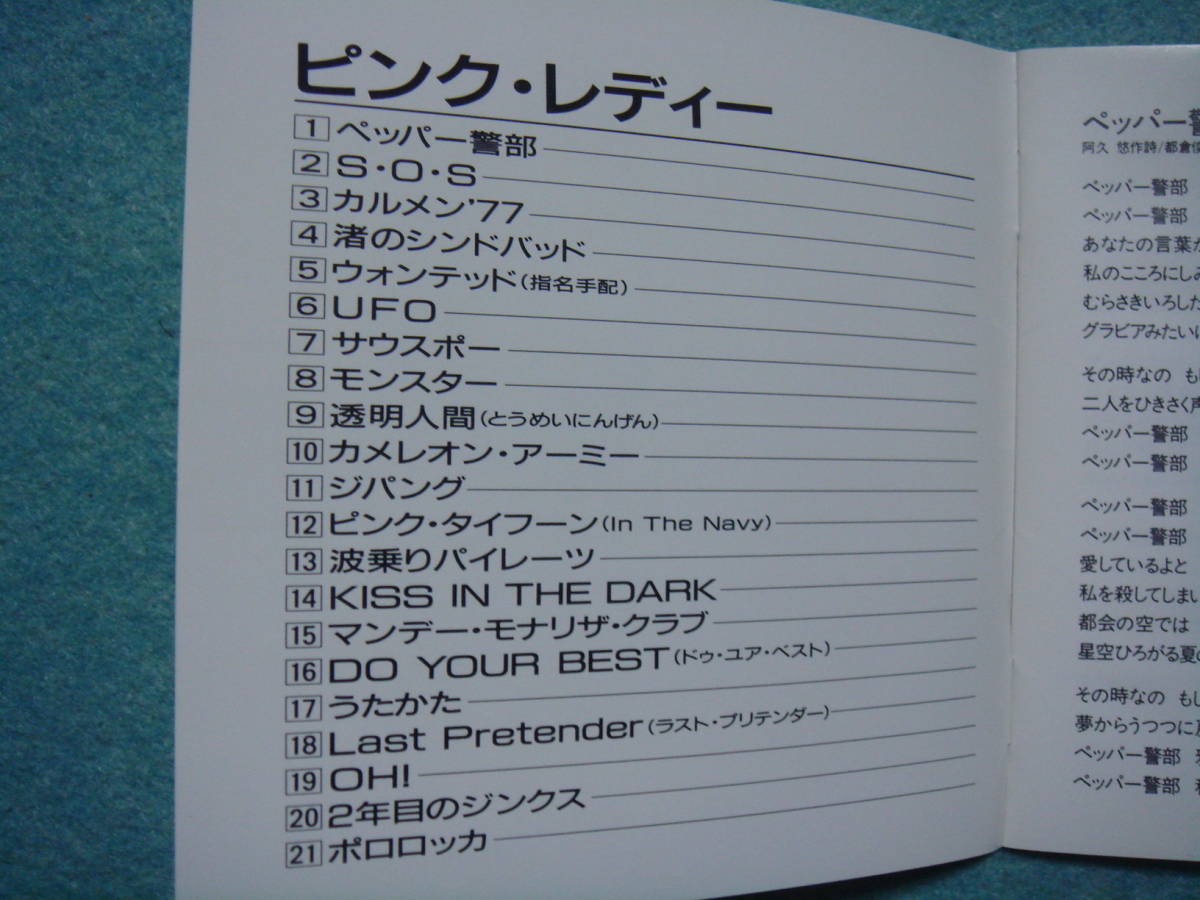 ピンク・レディー
1 ペッパー警部
2 S・O・S
3 カルメン'77
4 渚のシンドバッド
5 ウォンテッド(指名手配)
6 UFO
7 サウスポー
8 モンスター
9 透明人間(とうめいにんげん)
10 カメレオン・アーミー
11 ジパング
12 ピンク・タイフーン(In The Navy)
13 波乗りパイレーツ
14 KISS IN THE DARK
15 マンデー・モナリザ・クラブ
16 DO YOUR BEST(ドゥ・ユア・ベスト)
17 うたかた
18 Last Pretender(ラスト・プリテンダー)
19 OH!
20 2年目のジンクス
21 ポロロッカ
ペッパー警
阿久 悠作詩/都倉俊
ペッパー警部
ペッパー警部
あなたの言葉が
私のこころにしみ
むらさきいろした
グラビアみたいに
その時なの もし
二人をひきさく声
ペッパー警部
ペッパー警部
ペッパー警部
ペッパー警部
愛しているよと
私を殺してしまい
都会の空では
星空ひろがる夏の
その時なの もし
夢からうつつに
ペッパー警部
ペッパー警部